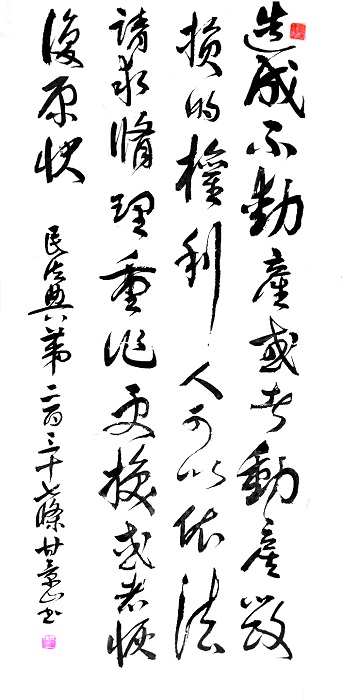 造成不動產或者動產毀
損的權利人可以依法
請求脩理重作更換或者恢
復原狀
民法典第二百三十七條 甘景山书